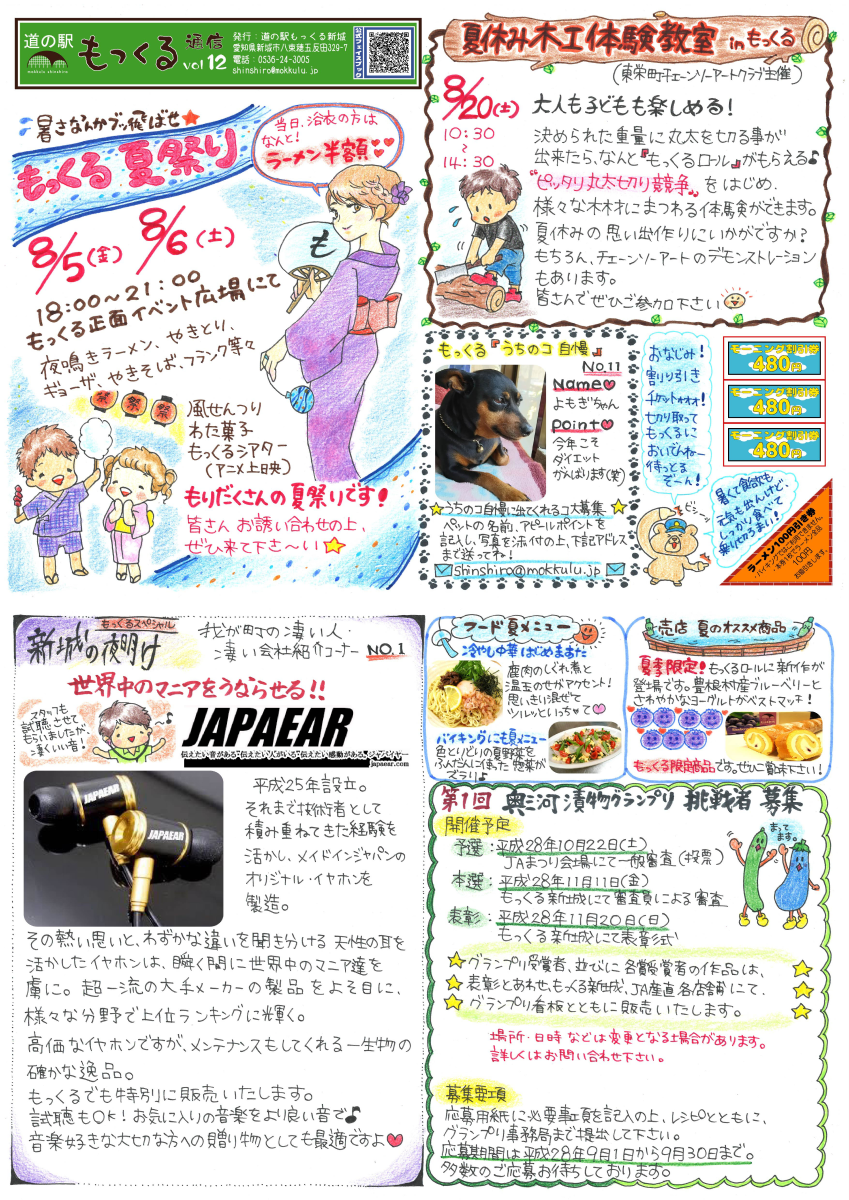 道の駅
mokkulu shinshiro
もっくる 通信
vol 12
発行：道の駅もっくる新城
愛知県新城市八束穂五反田329-7
電話：0536-24-3005
shinshiro@mokkulu.jp
公式フェイスブック
暑さなんかブッ飛ばせ
もっくる 夏祭り
当日、浴衣の方は
なんと！
ラーメン半額
8/5(金) 8/6(土)
18:00〜21:00
もっくる正面イベント広場にて
夜鳴きラーメン、やきとり、
ギョーザ、やきそば、フランク等々
祭 祭 祭
も
風せんつり
わた菓子
もっくるシアター
(アニメ上映)
もりだくさんの夏祭りです！
皆さん お誘い合わせの上、
ぜひ来て下さ〜い
夏休み木工体験教室 inもっくる
(東栄町チェーンソーアートクラブ主催)
8/20(土)
10:30
〜
14:30
大人も子どもも楽しめる！
決められた重量に丸太を切る事が
出来たら、なんと『もっくるロール』がもらえる♪
"ピッタリ丸太切り競争"をはじめ、
様々な木材にまつわる体験ができます。
夏休みの思い出作りにいかがですか？
もちろん、チェーンソーアートのデモンストレーション
もあります。
皆さんでぜひご参加下さい
もっくる『うちのコ自慢』
No.11
Name
よもぎちゃん
Point
今年こそ
ダイエット
がんばります(笑)
うちのコ自慢に出てくれるコ大募集
ペットの名前、アピールポイントを
記入し、写真を添付の上、下記アドレス
まで送ってね！
shinshiro@mokkulu.jp
おなじみ！
割り引き
チケットォォォ！
切り取って
もっくるに
おいでんねー
待っとる
ぞーん！
モーニング割引券
480円
モーニング割引券
480円
モーニング割引券
480円
ビシッ
暑くて食欲も
元気も出んけど、
しっかり食べて
乗り切ろまい！
ラーメン100円引き券
・バイキングではご利用できません。
・本券1枚でラーメン全品
100円
お値引きします。
もっくるスペシャル
新城の夜明け
我が町の凄い人・
凄い会社紹介コーナー NO.1
世界中のマニアをうならせる!!
スタッフも
試聴させて
もらいましたが、
凄くいい音！
JAPAEAR
伝えたい音がある・伝えたい人がいる・伝えたい感動がある。ジャパイヤー
japaear.com
JAPAEAR
JAPAEAR
平成25年設立。
それまで技術者として
積み重ねてきた経験を
活かし、メイドインジャパンの
オリジナル・イヤホンを
製造。
その熱い思いと、わずかな違いを聞き分ける 天性の耳を
活かしたイヤホンは、瞬く間に世界中のマニア達を
虜に。超一流の大手メーカーの製品をよそ目に、
様々な分野で上位ランキングに輝く。
高価なイヤホンですが、メンテナンスもしてくれる一生物の
確かな逸品。
もっくるでも特別に販売いたします。
試聴もOK！お気に入りの音楽をより良い音で♪
音楽好きな大切な方への贈り物としても最適ですよ
フード夏メニュー
冷やし中華はじめました
鹿肉のしぐれ煮と
温玉のせがアクセント！
思いっきり混ぜて
ツルッといっちゃって
バイキングにも夏メニュー
色とりどりの夏野菜を
ふんだんに使った惣菜が
ズラリ♪
売店 夏のオススメ商品
夏季限定！もっくるロールに新作が
登場です。豊根村産ブルーベリーと
さわやかなヨーグルトがベストマッチ！
もっくる限定商品です。ぜひご賞味下さい！
第1回 奥三河漬物グランプリ 挑戦者 募集
開催予定
予選：平成28年10月22日(土)
JAまつり会場にて一般審査(投票)
本選：平成28年11月11日(金)
もっくる新城にて審査員による審査
表彰：平成28年11月20日(日)
もっくる新城にて表彰式
まってます。
グランプリ受賞者、並びに各賞受賞者の作品は、
表彰とあわせ、もっくる新城、JA産直各店舗にて、
グランプリ看板とともに販売いたします。
場所・日時などは変更となる場合があります。
詳しくはお問い合わせ下さい。
募集要項
応募用紙に必要事項を記入の上、レシピとともに、
グランプリ事務局まで提出して下さい。
応募期間は平成28年9月1日から9月30日まで。
多数のご応募お待ちしております。